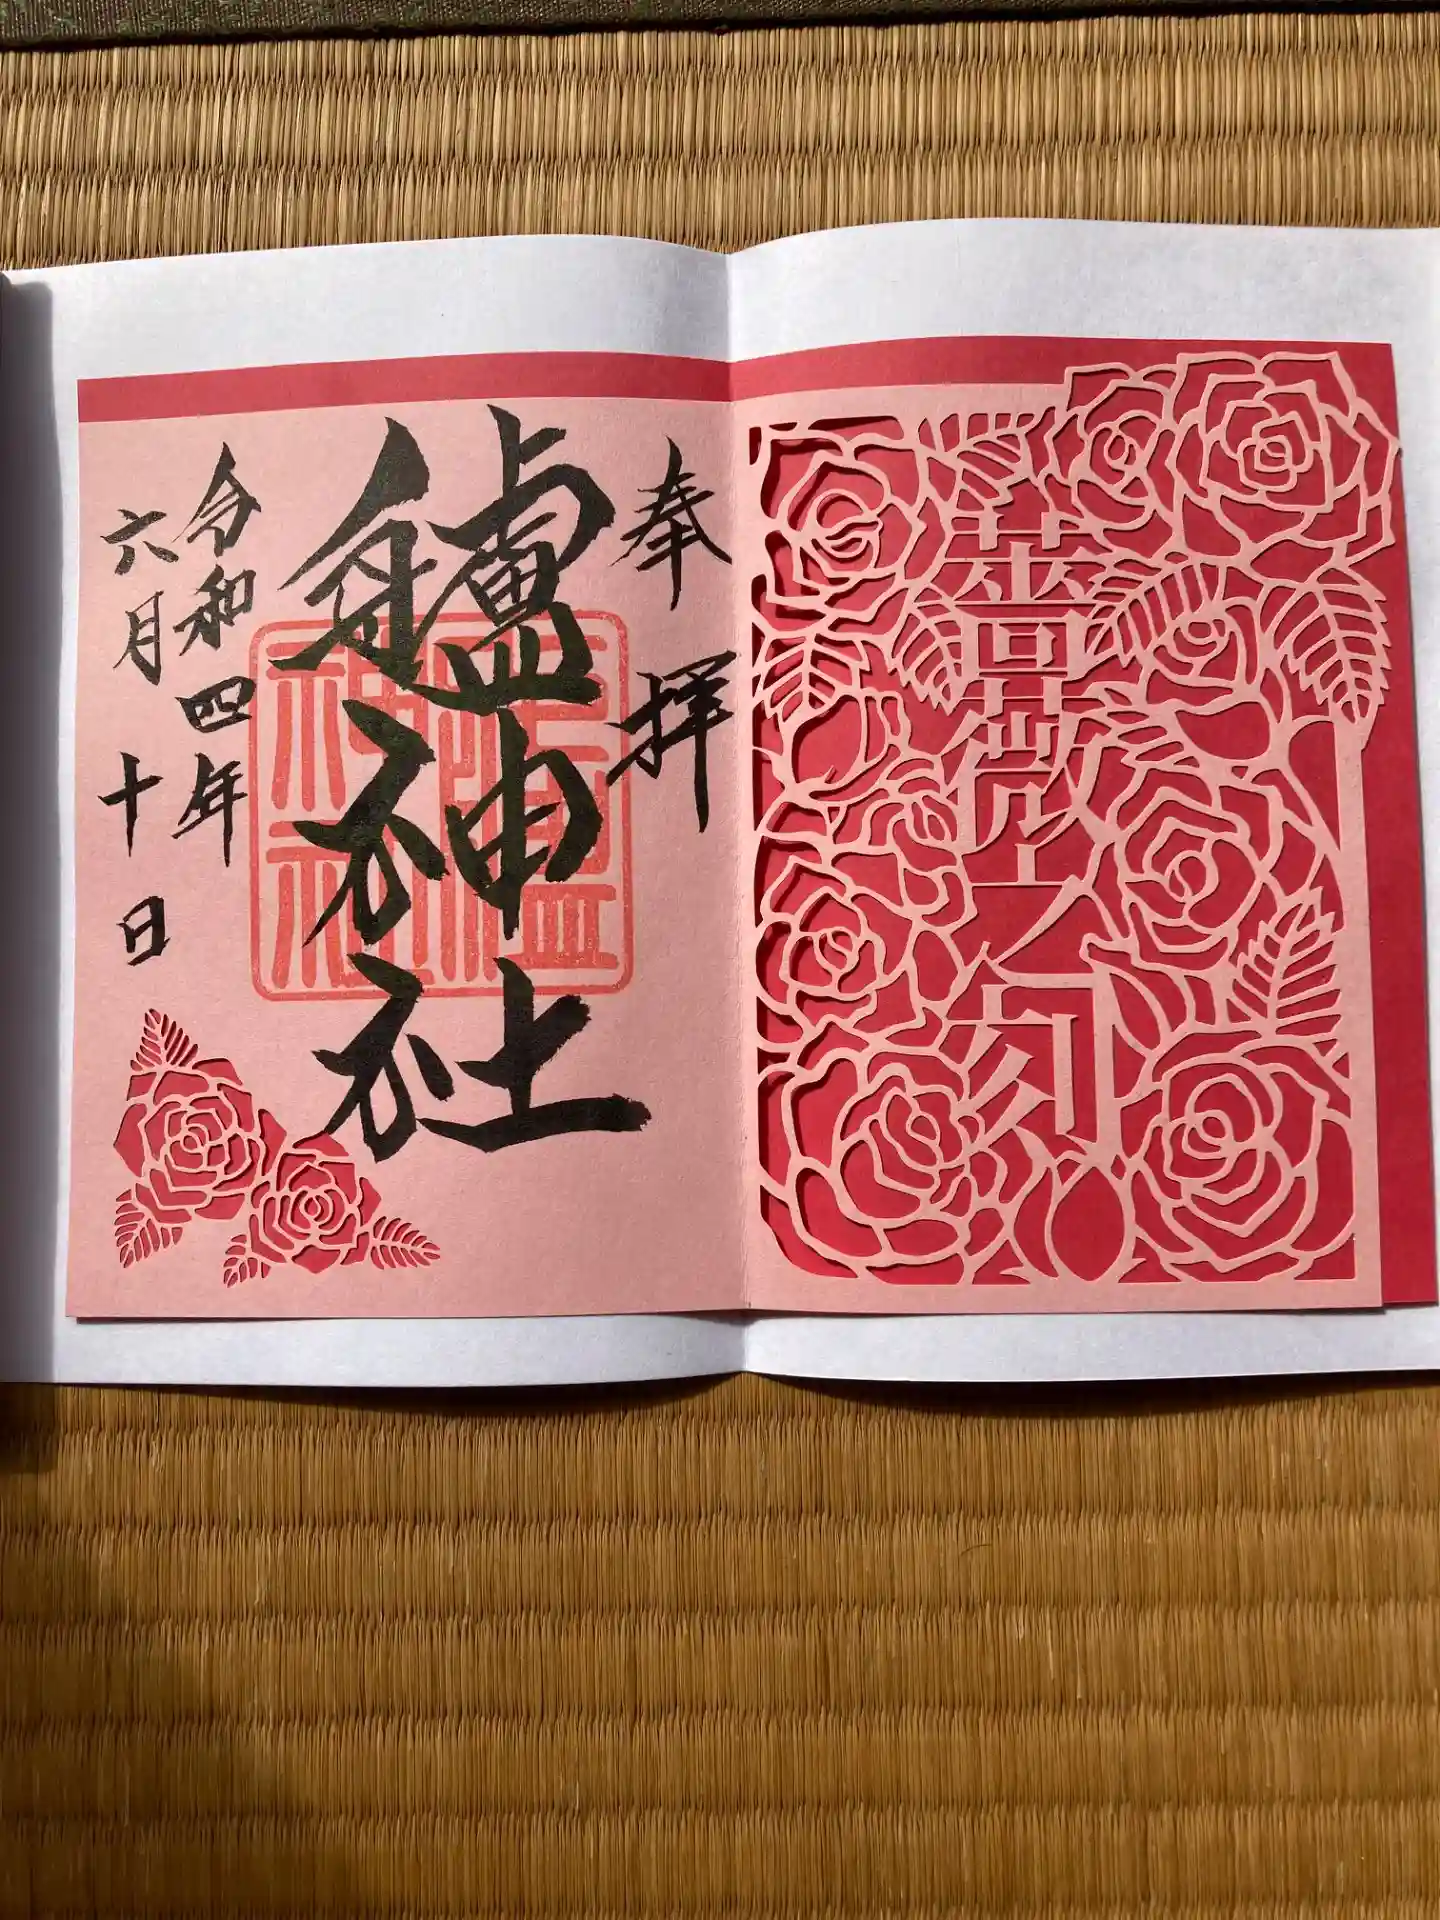 薔薇之刻
奉拝
艫神社
令和四年
六月十日
艫神社